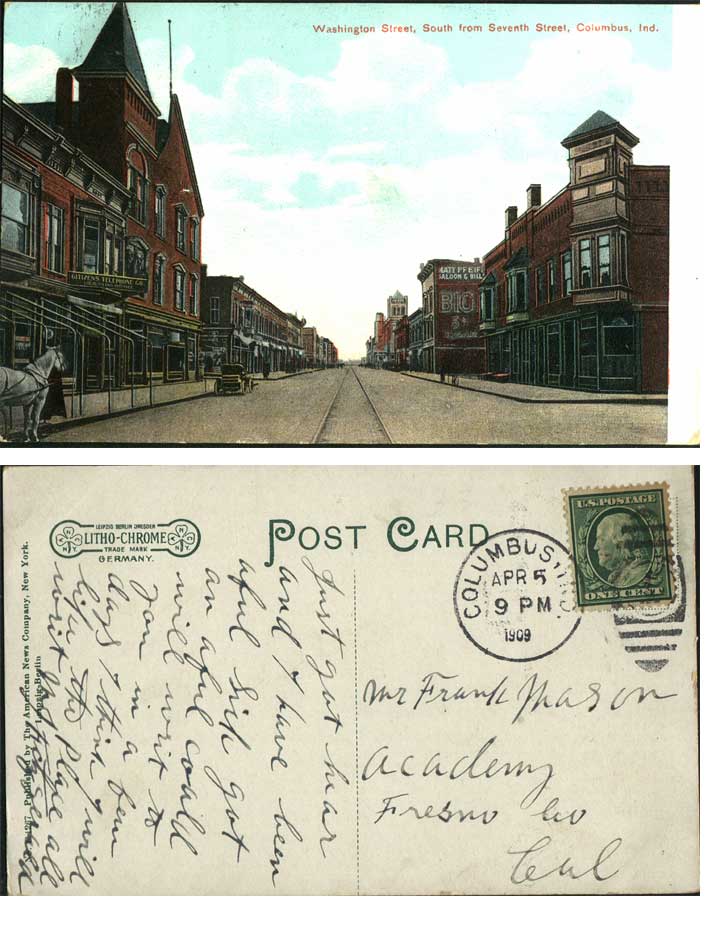 Washington Street, South from Seventh Street, Columbus, Ind.
CITIZENS TELEPHONE CO.
MATT PFEIF
SALOON & BILL
BIG
LEIPZIG BERLIN DRESDEN
LITHO-CHROME
TRADE MARK
GERMANY.
POST CARD
Published by The American News Company, New York.
Leipzig-Berlin
COLUMBUS, IND.
APR 5
9 PM
1909
U.S. POSTAGE
ONE CENT
Just got hear
and I have been
aful sick got
an aful coald
will writ to
you in a
days I think
like the Place
Mr Frank Mason
Academy
Fresno Co
Cal